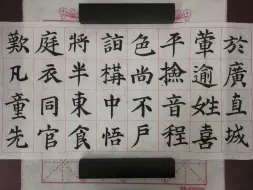 於廣直城
葷逾姓喜
平撿音程
色尚不戶
詣構中悟
將半東食
庭衣同官
歎凡童先